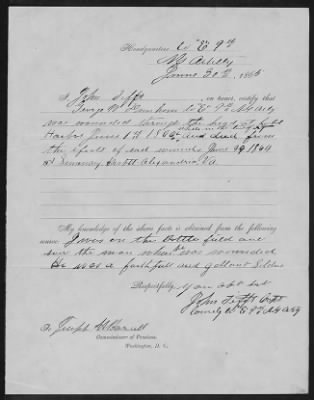 Headquarters Co "E" 9th
NY Artillery
June 30th 1865
I John Tifft, on honor, certify that
George W. Co E 9th NY Arty
was wounded through the head at Cold
Harbor June 1st 1864 and died from
the effects of said wounds June 1864
at Hospt Alexandria Va.
My knowledge of the above facts is obtained from the following
source: I was on the battle field and
saw the man when he was wounded
He was a faithfull and gallant Soldier
Respectfully, your obt Svt
John Tifft Capt
Comdg Co E 9th NY Arty
To Joseph H Barrett
Commissioner of Pensions,
Washington, D. C.